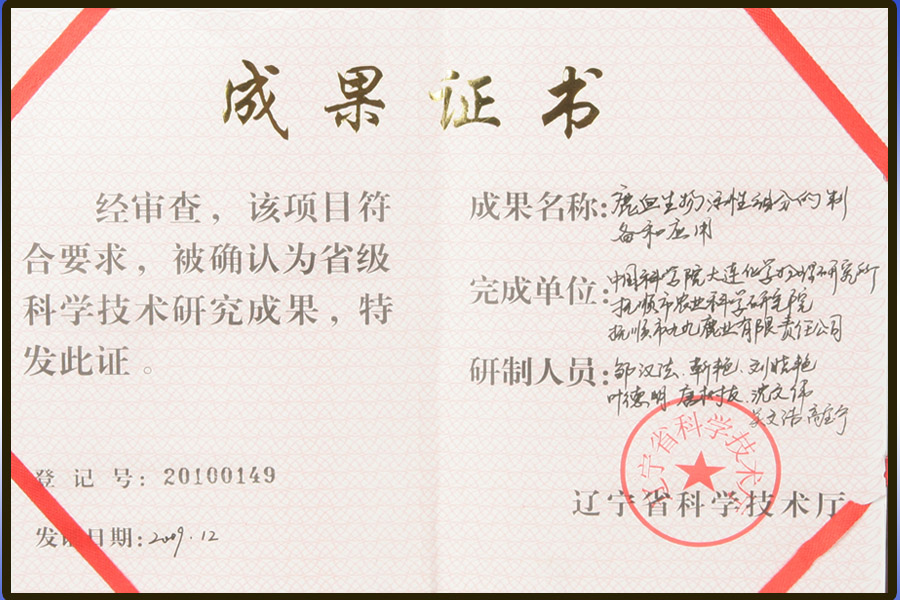 成果证书
经审查，该项目符
合要求，被确认为省级
科学技术研究成果，特
发此证。
登记号：20100149
发证日期：2009.12
成果名称：鹿血生物活性组分的制
备和应用
完成单位：中国科学院大连化学物理研究所
抚顺市农业科学研究院
抚顺市九九鹿业有限责任公司
研制人员：邹汉法 靳艳 刘晓艳
叶德明 唐树友 沈文伟
文浩 宁
辽宁省科学技术厅
辽宁省科学技术厅